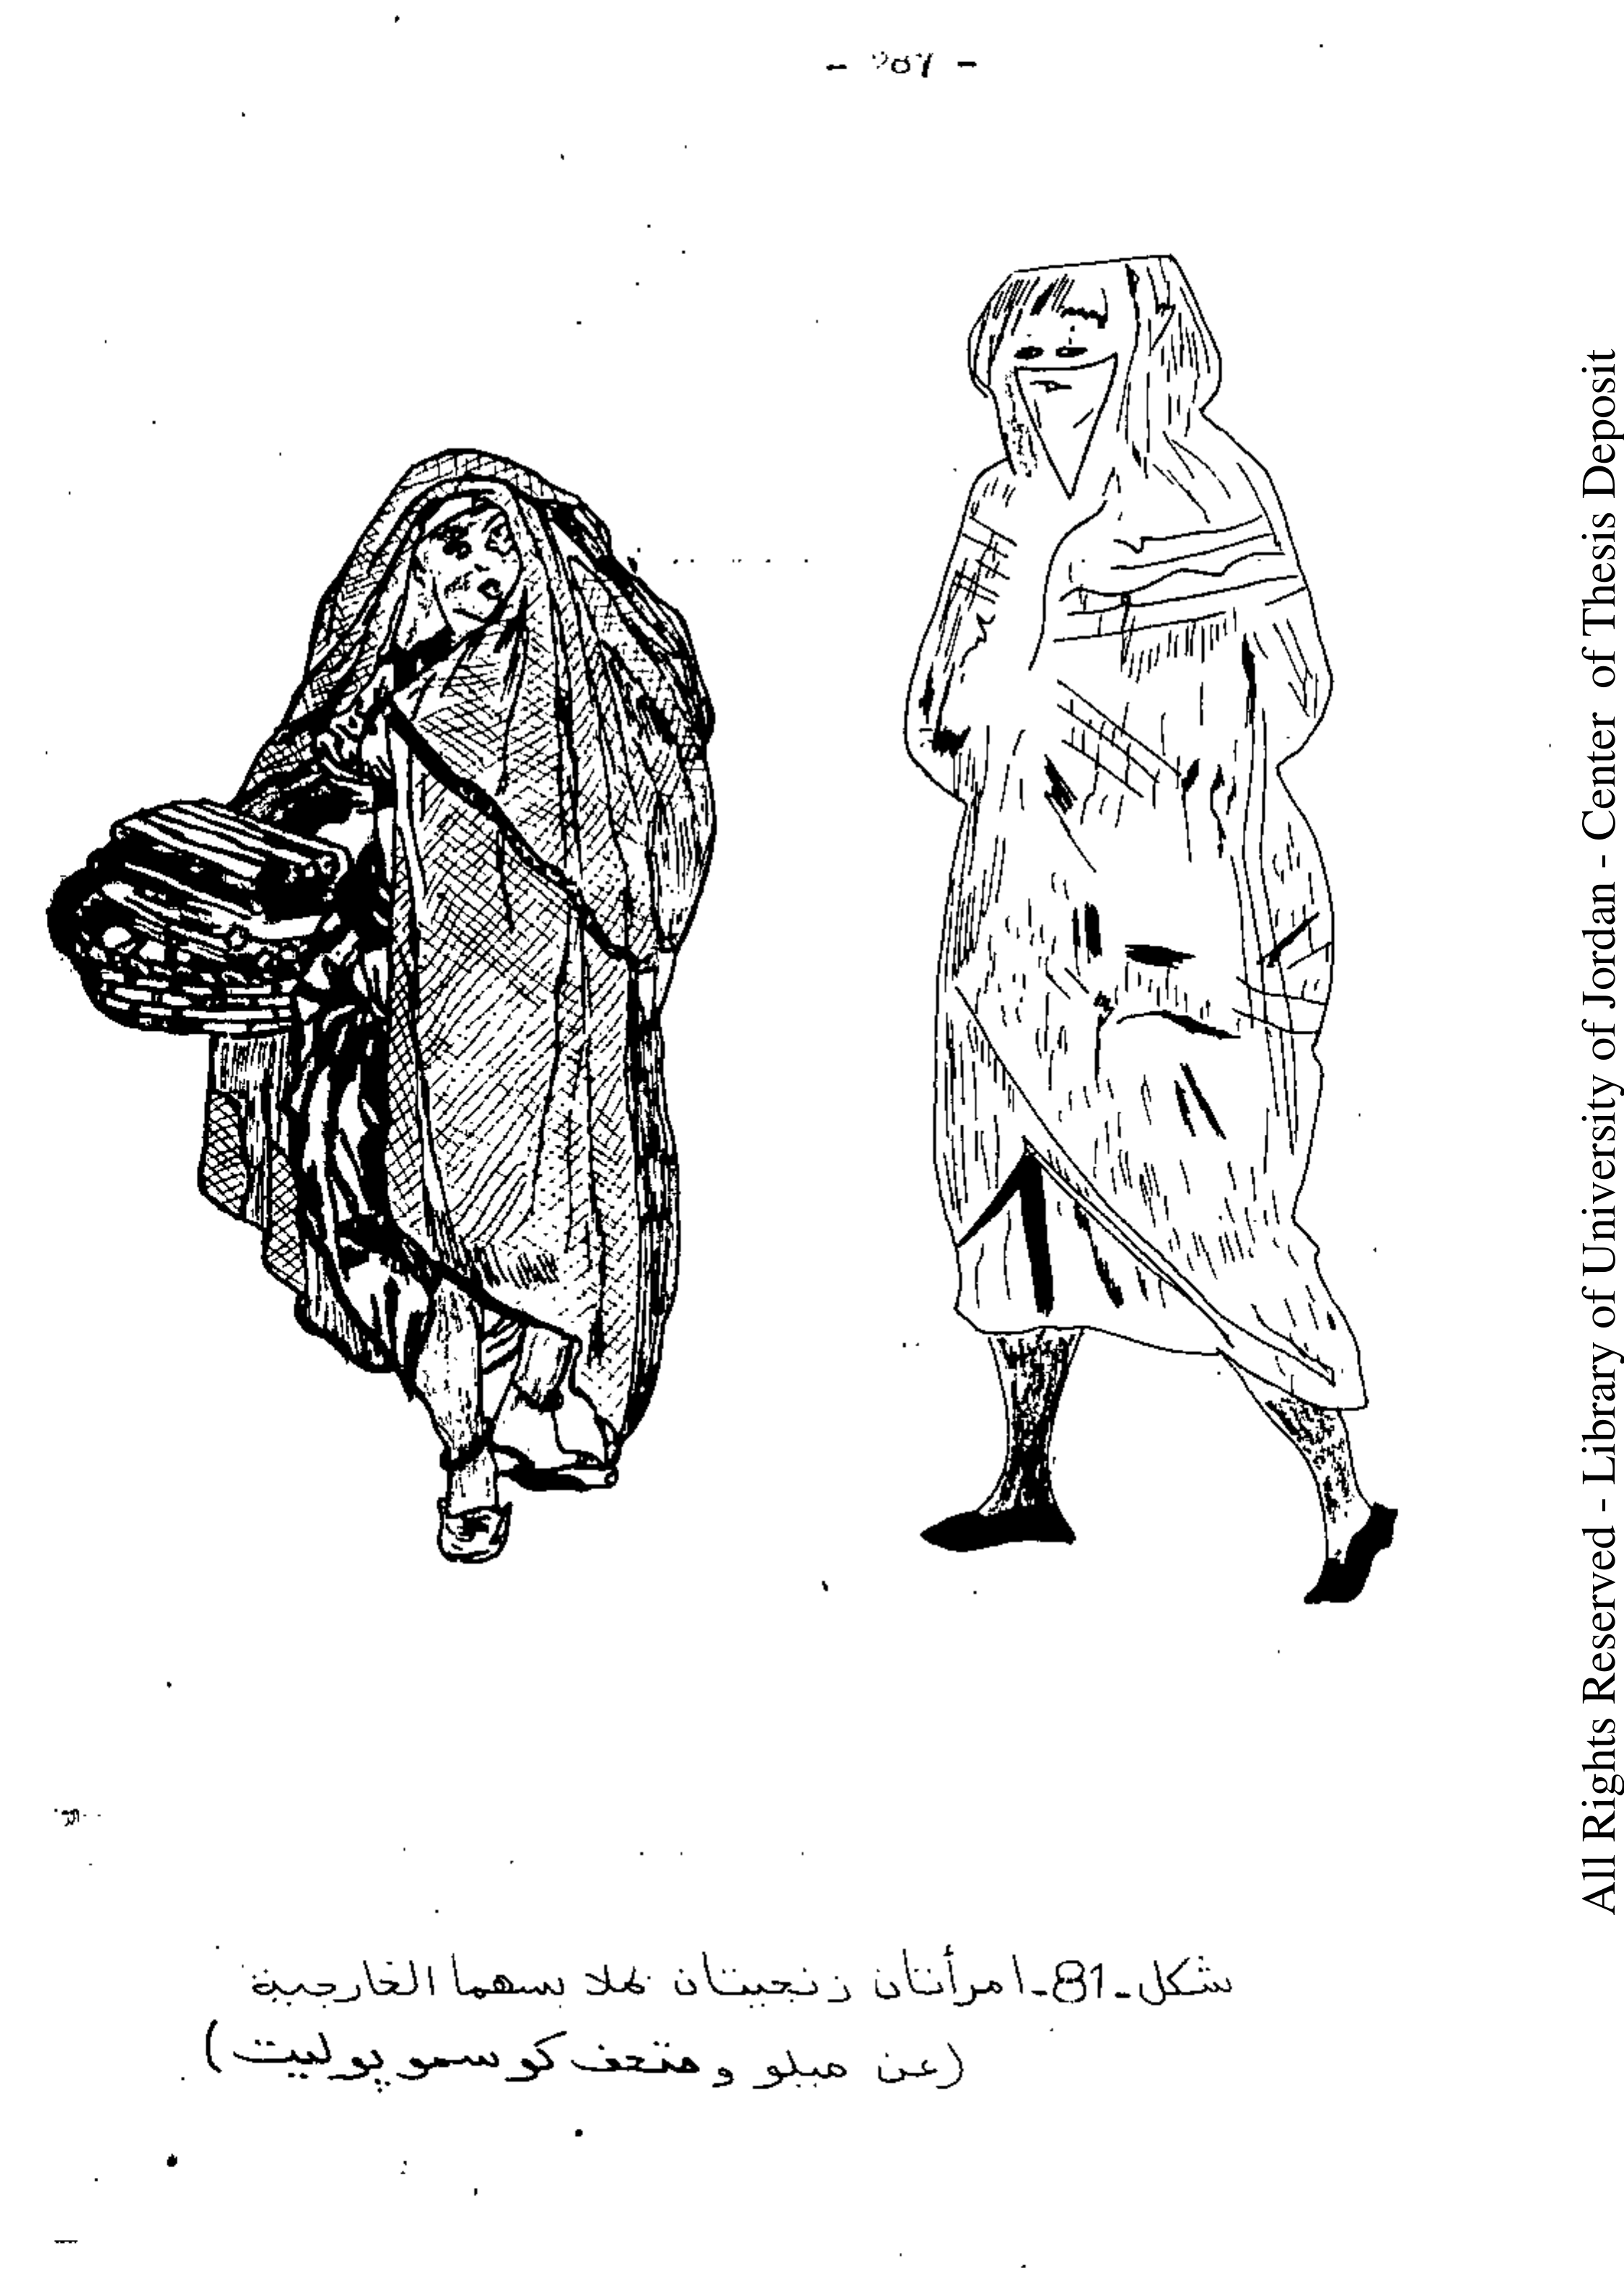 - 287 -
شكل-81-امرأتان زنجيتان بملابسهما الخارجية
(عن ميلو ومتحف كوسمو پوليت)
All Rights Reserved - Library of University of Jordan - Center of Thesis Deposit